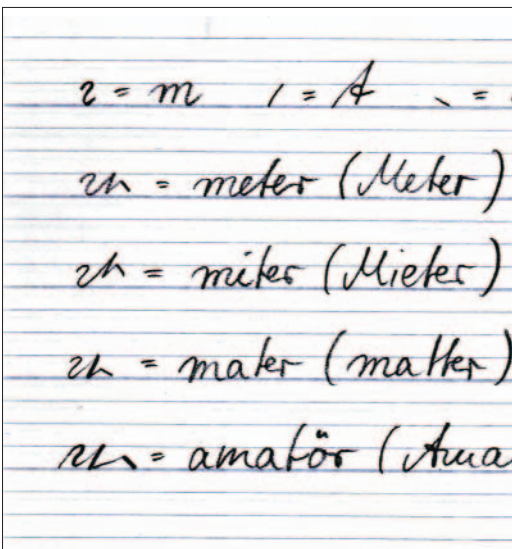 = m = A =
= meter (Meter)
= miter (Mieter)
= mater (matter)
= amatör (Ama